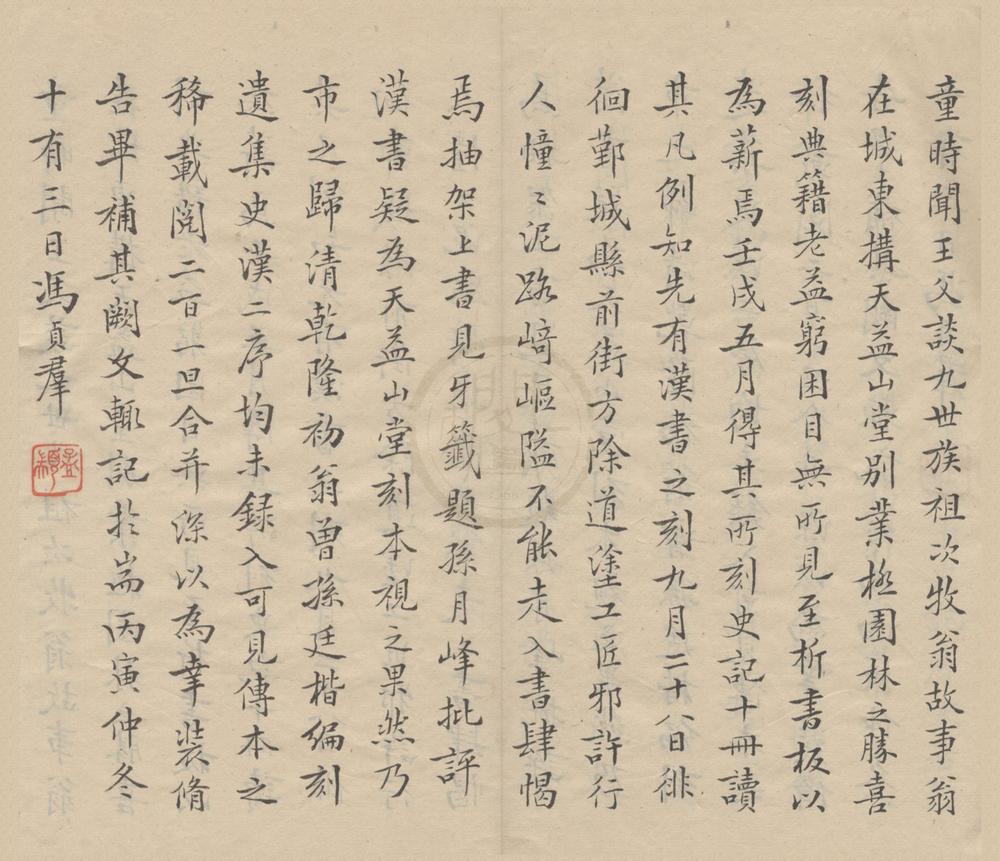 童時聞王父談九世族祖次牧翁故事翁
在城東搆天益山堂別業極園林之勝喜
刻典籍老益窮困目無所見至析書板以
為薪焉壬戌五月得其所刻史記十冊讀
其凡例知先有漢書之刻九月二十八日徘
徊鄞城縣前街方除道塗工匠邪許行
人憧〻泥路﨑嶇隘不能走入書肆愒
焉抽架上書見牙籤題孫月峰批評
漢書疑為天益山堂刻本視之果然乃
市之歸清乾隆初翁曾孫廷楷編刻
遺集史漢二序均未錄入可見傳本之
稀載閱二百一旦合并深以為幸裝脩
告畢補其闕文輒記於耑丙寅仲冬
十有三日馮貞羣
孟顓